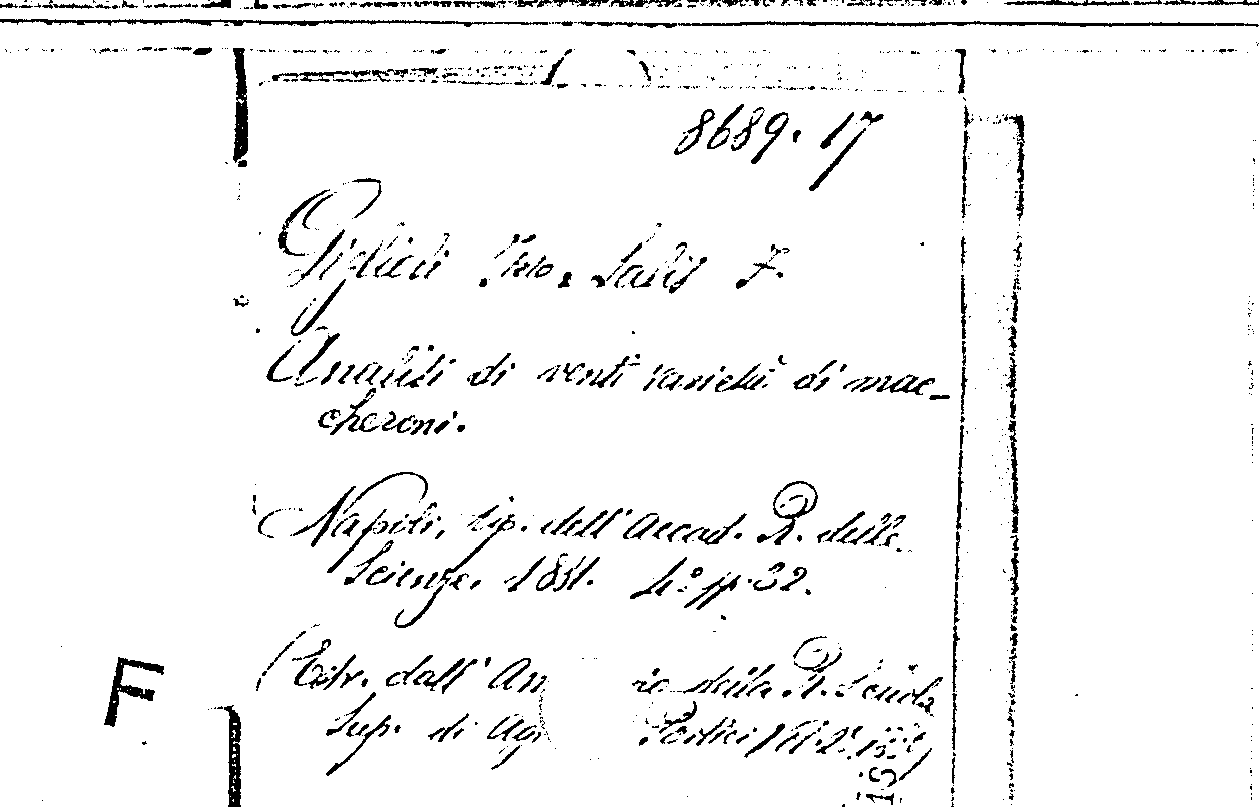 8689. 17
Giglioli Italo e Salis F.
Analisi di venti varietà di mac-
cheroni.
Napoli, tip. dell'Accad. R. delle
Scienze. 1881. 4º pp. 32.
(Estr. dall' An io della R. Scuola
Sup. di Agr Portici Vol. 2º.
F
is